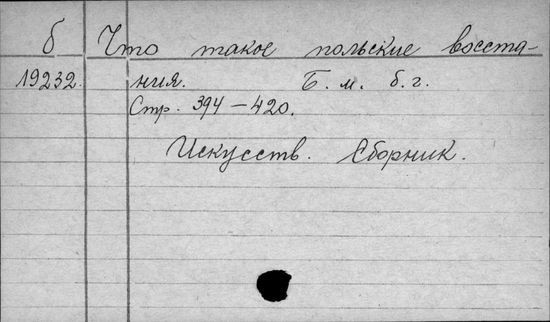 б Что такое польские восста-
19232. ния. Б. м. б. г.
Стр. 394-420.
Искусств. Сборник.